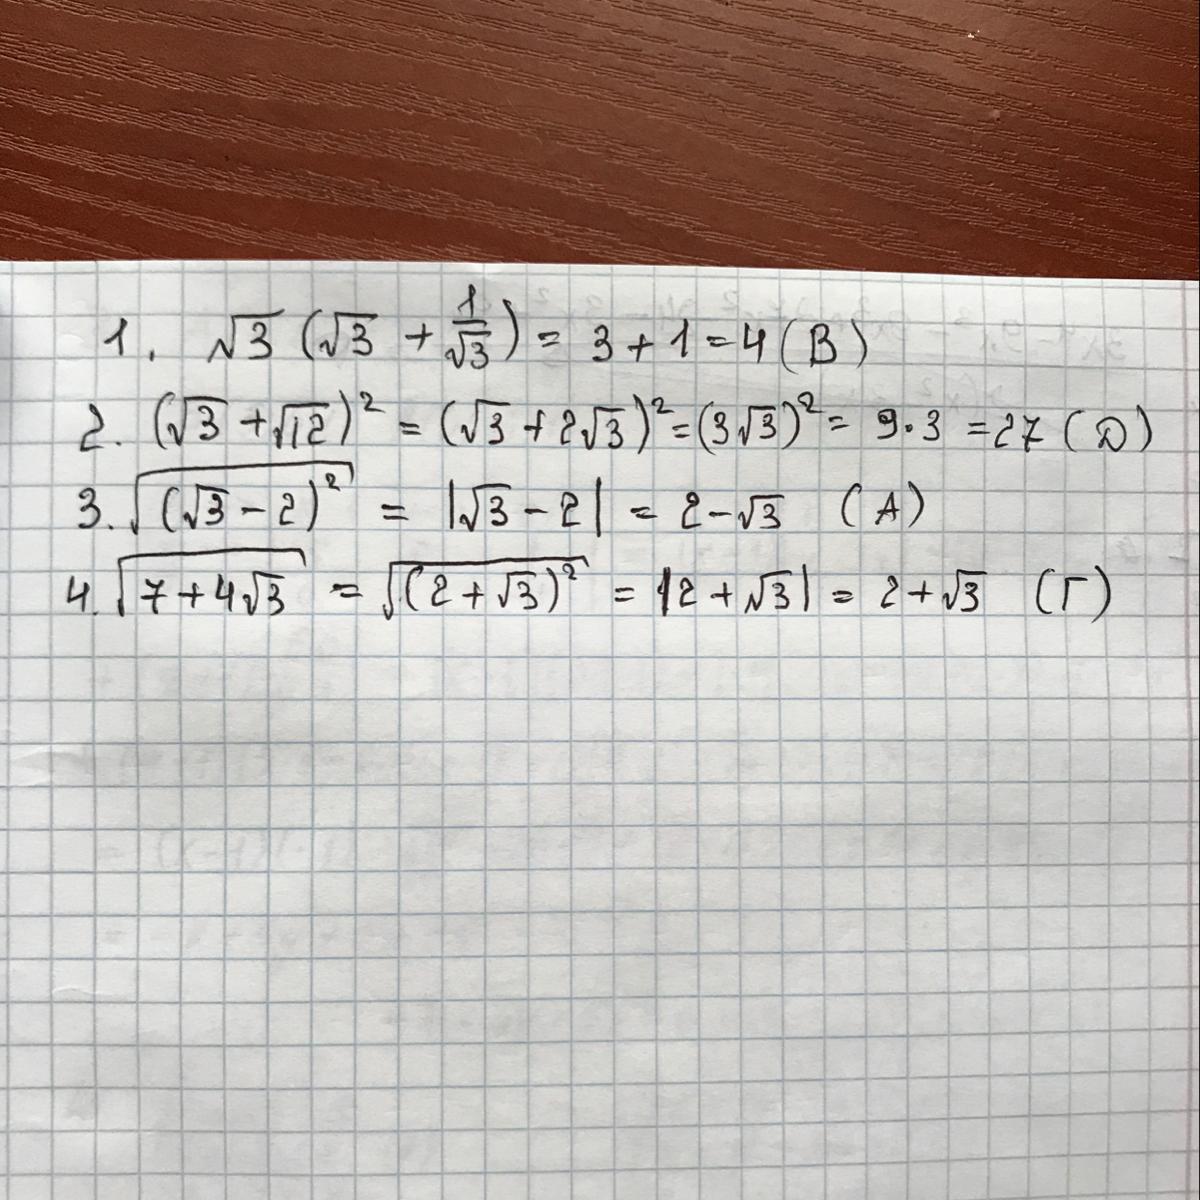 1. √3 (√3 + 1/√3) = 3 + 1 = 4 (В)
2. (√3 + √12)² = (√3 + 2√3)² = (3√3)² = 9·3 = 27 (Д)
3. √((√3 - 2)²) = |√3 - 2| = 2 - √3 (А)
4. √(7 + 4√3) = √((2 + √3)²) = |2 + √3| = 2 + √3 (Г)